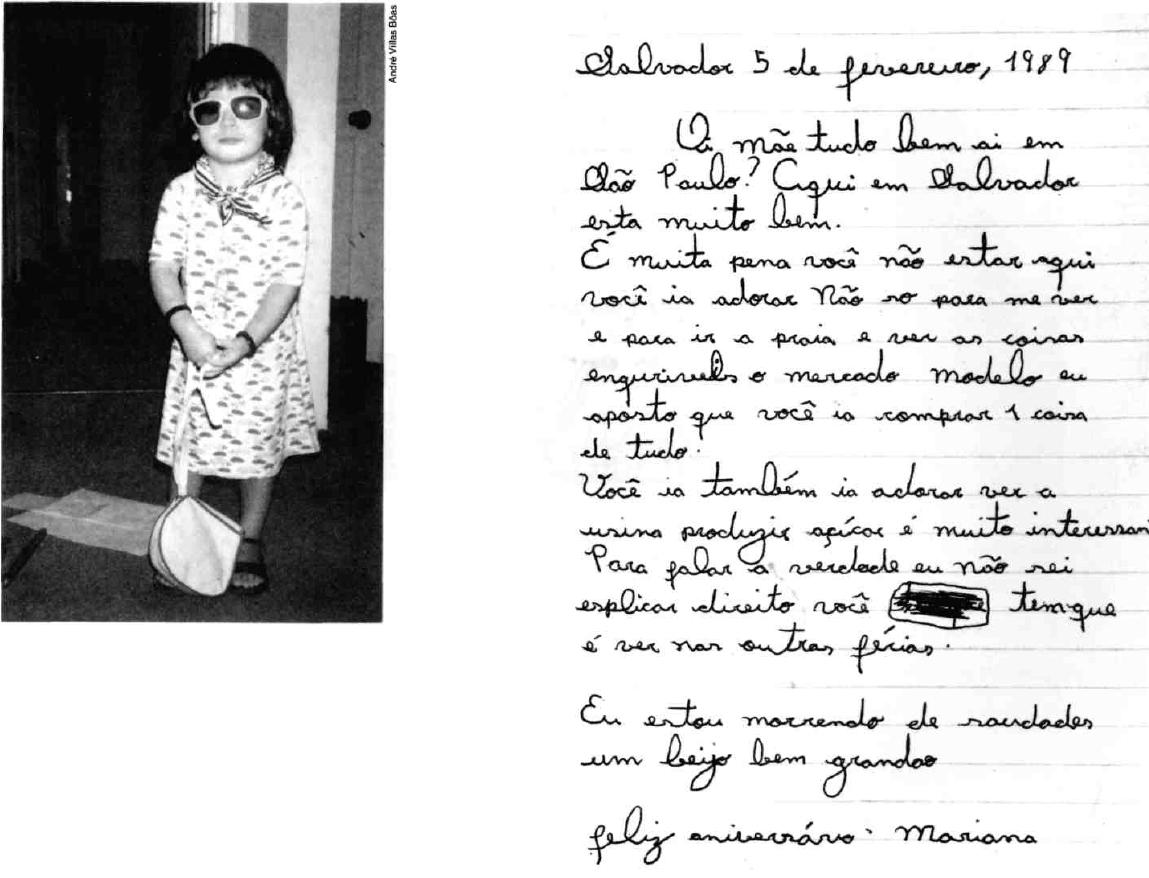 André Villas Bôas
Salvador 5 de fevereiro, 1989
Oi mãe tudo bem ai em
São Paulo? Aqui em Salvador
esta muito bem.
É muita pena você não estar aqui
você ia adorar Não so para me ver
e para ir a praia e ver as coisas
no mercado modelo eu
aposto que você ia comprar 1 coisa
de tudo.
Você ia também ia adorar ver a
usina produzir açúcar é muito interessan
Para falar a verdade eu não sei
esplicar direito você tem que
é ver nas outras férias.
Eu estou morrendo de saudades
um beijo bem grandão
feliz aniversário. Mariana